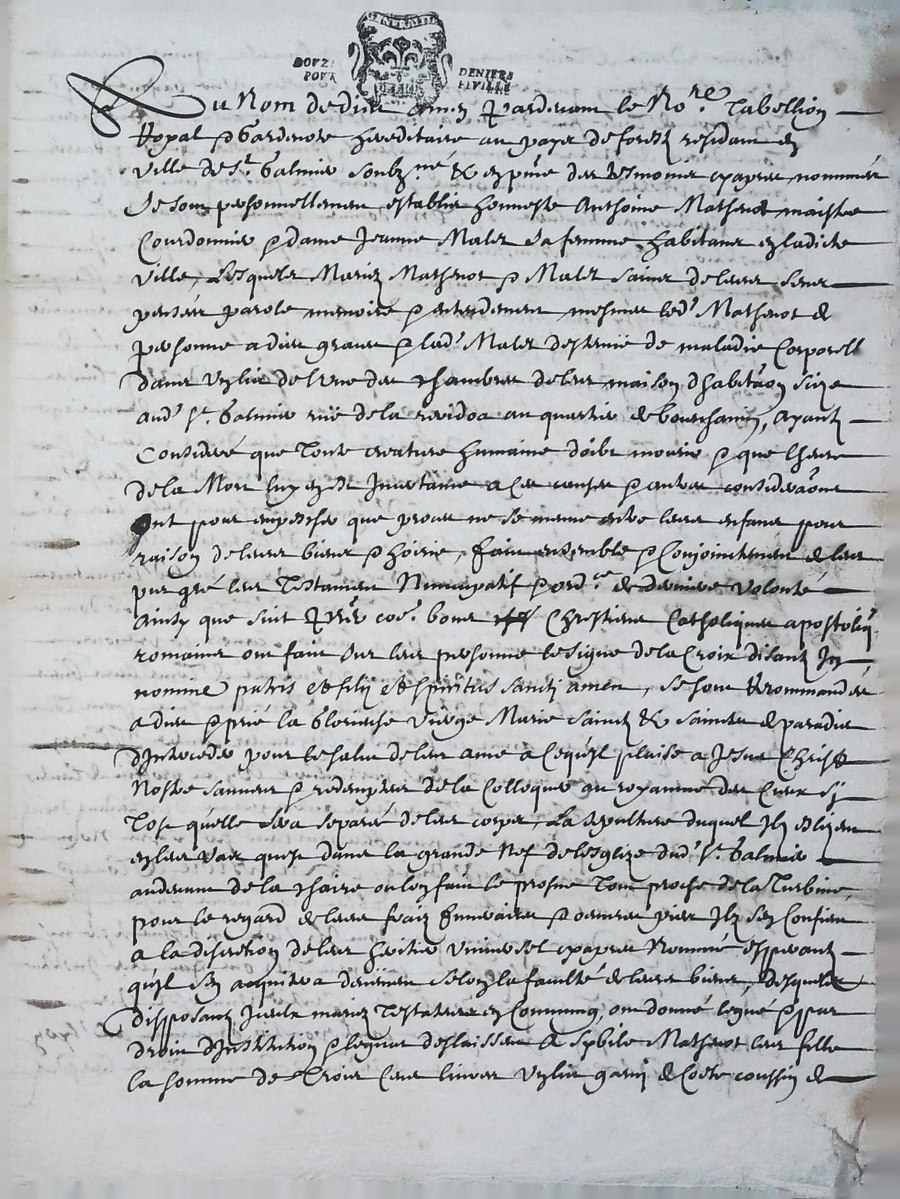 GENERALITE
DOVZE DENIERS
POVR FEVILLE
Au Nom de dieu Amen Pardevant le No.re Tabellion
Royal & Gardenote hereditaire au payx de forestz residant en
ville de St. Galmier soubz.né & en p̄nce des tesmoins cyapres nommés
Se sont personnellement establis honneste Anthoine Mathevot maistre
Courdonnier & dame Jeanne Malez sa femme habitans en ladicte
ville, Lesquels Mariez Mathevot & Malez sains de leurs sens
pensée parole memoire & entendement mesmes led. Mathevot de
personne a dieu graces & lad. Malez destenue de maladie Corporell
dans un lict de l'une des chambres de leur maison d'habitāon size
aud. St. Galmier rue de la au quartier de bouchann, ayantz
Consideré que Toute creature humaine doibt mourir & que l'heure
de la Mort luy est Incertaine a ces causes & autres considerāons
Ont pour empescher que proces ne se meuve entre leurs enfans pour
raison de leurs biens & hoirie, fait ensemble & Conjoinctement de leur
pur gré leur Testament Nuncupatif & ord.ce de derniere volonté
Ainsy que suit Et co.e bons Chrestiens Catholiques apostoliq.
romains ont fait sur leur personne le signe de la Croix disant In
nomine patris et filij et spiritus sancti amen, se sont recommandés
a dieu & prié la Glorieuse vierge Marie saintz & saintes de paradis
d'Interceder pour le salut de leur ame a ce qu'il plaise a Jesus Christ
Nostre sauveur & redempteur de la Colloquer au royaume des Cieux sy
Tost qu'elle sera separée de leur corps, La sepulture duquel Ilz eslizent
en leur vas quest dans la grande Nef de lesglize dud. St. Galmier
audevant de la chaire ou lon fait le prosne Tout proche de la Turbine
pour le regard de leurs fraiz funeraires & oeuvres pies Ilz s'en Confient
a la discretion de leur heritier universel cyapres Nommé esperantz
qu'il s'en acquitera deüement selon la faculté de leurs biens, Desquels
disposantz Iceulx mariez Testateurs en Commung, ont donné legué & par
droit d'Institution & legat deslaissent A Sybile Mathevot leur fille
la somme de Trois Cens livres un lict garni de Coete coussin de